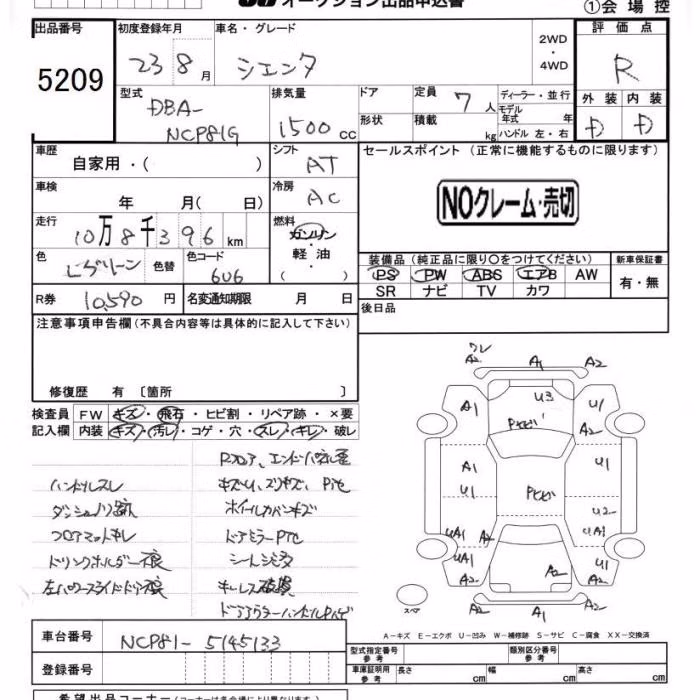 オークション出品申込書
①会場控
出品番号
5209
初度登録年月
23 8月
車名・グレード
シエンタ
2WD
・
4WD
評価点
R
外装 内装
D D
型式
DBA-
NCP81G
排気量
1500cc
ドア
形状
定員 7人
積載 kg
ディーラー・並行
モデル
年式 年
ハンドル 左・右
車歴
自家用・( )
シフト
AT
セールスポイント (正常に機能するものに限ります)
NOクレーム・売切
車検
年 月( 日)
冷房
AC
走行
10万8千396km
燃料
ガソリン
・
軽油
・
( )
色
Lグリーン
色替
色コード
6U6
装備品(純正品に限り○をつけてください)
PS PW ABS エアB AW
SR ナビ TV カワ
新車保証書
有・無
R券 10,590円
名変通知期限 月 日
後日品
注意事項申告欄(不具合内容等は具体的に記入して下さい)
修復歴 有 〔箇所 〕
検査員
記入欄
FW キズ・飛石・ヒビ割・リペア跡・×要
内装 キズ・汚レ・コゲ・穴・スレ・キレ・破レ
Rフロア、エンドパネル歪
ハンドルスレ
キズU、スリキズ、Pte
ダッシュノリ跡
ホイールカバーキズ
フロアマットキレ
ドアミラーPte
ドリンクホルダー不良
シートシミ
左パワースライドドア不良
キーレス破損
ワレ
A2 A1 A2
A1 U3 U1
A1 U1
U1 U2
UA1 A2 UA1
U1 A2 U1
A2 A2
A2 A1 A2
スペア
A-キズ E-エクボ U-凹み W-補修跡 S-サビ C-腐食 XX-交換済
車台番号 NCP81-5145133
登録番号
型式指定番号
参考
類別区分番号
参考
車庫証明用
参考
長さ cm 幅 cm 高さ cm
希望出品コーナー